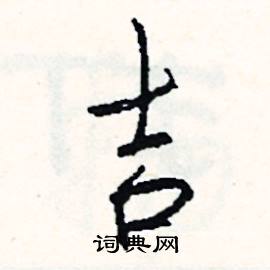 吉
词典网